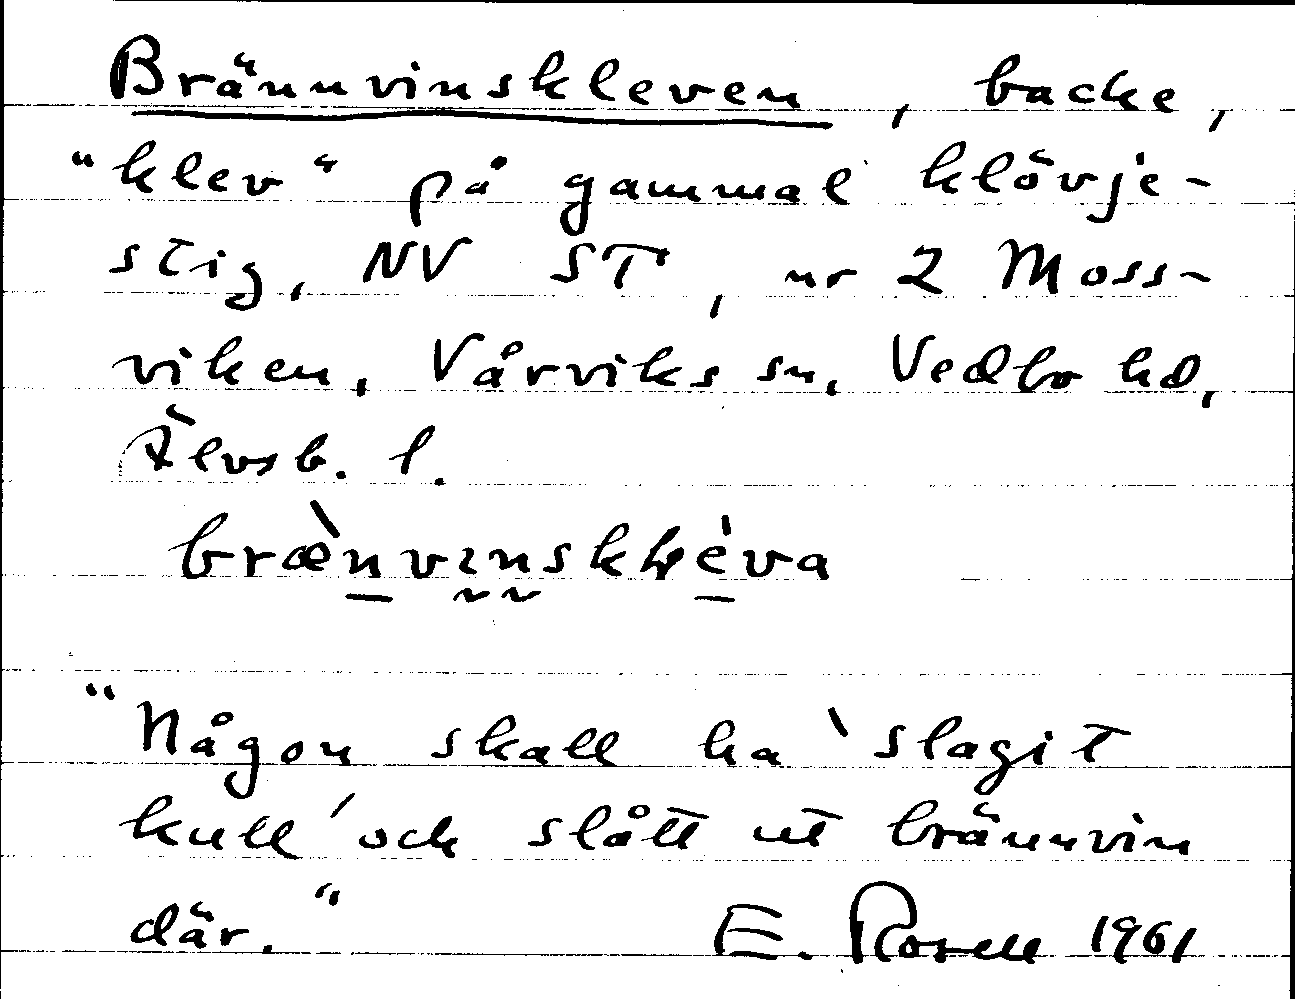 Brännvinskleven, backe,
"klev" på gammal klövje-
stig, NV ST, nr 2 Moss-
viken, Vårviks sn, Vedbo hd,
Älvsb. l.

"Någon skall ha 'slagit
kull' och slått ut brännvin
där." E. Rosell 1961